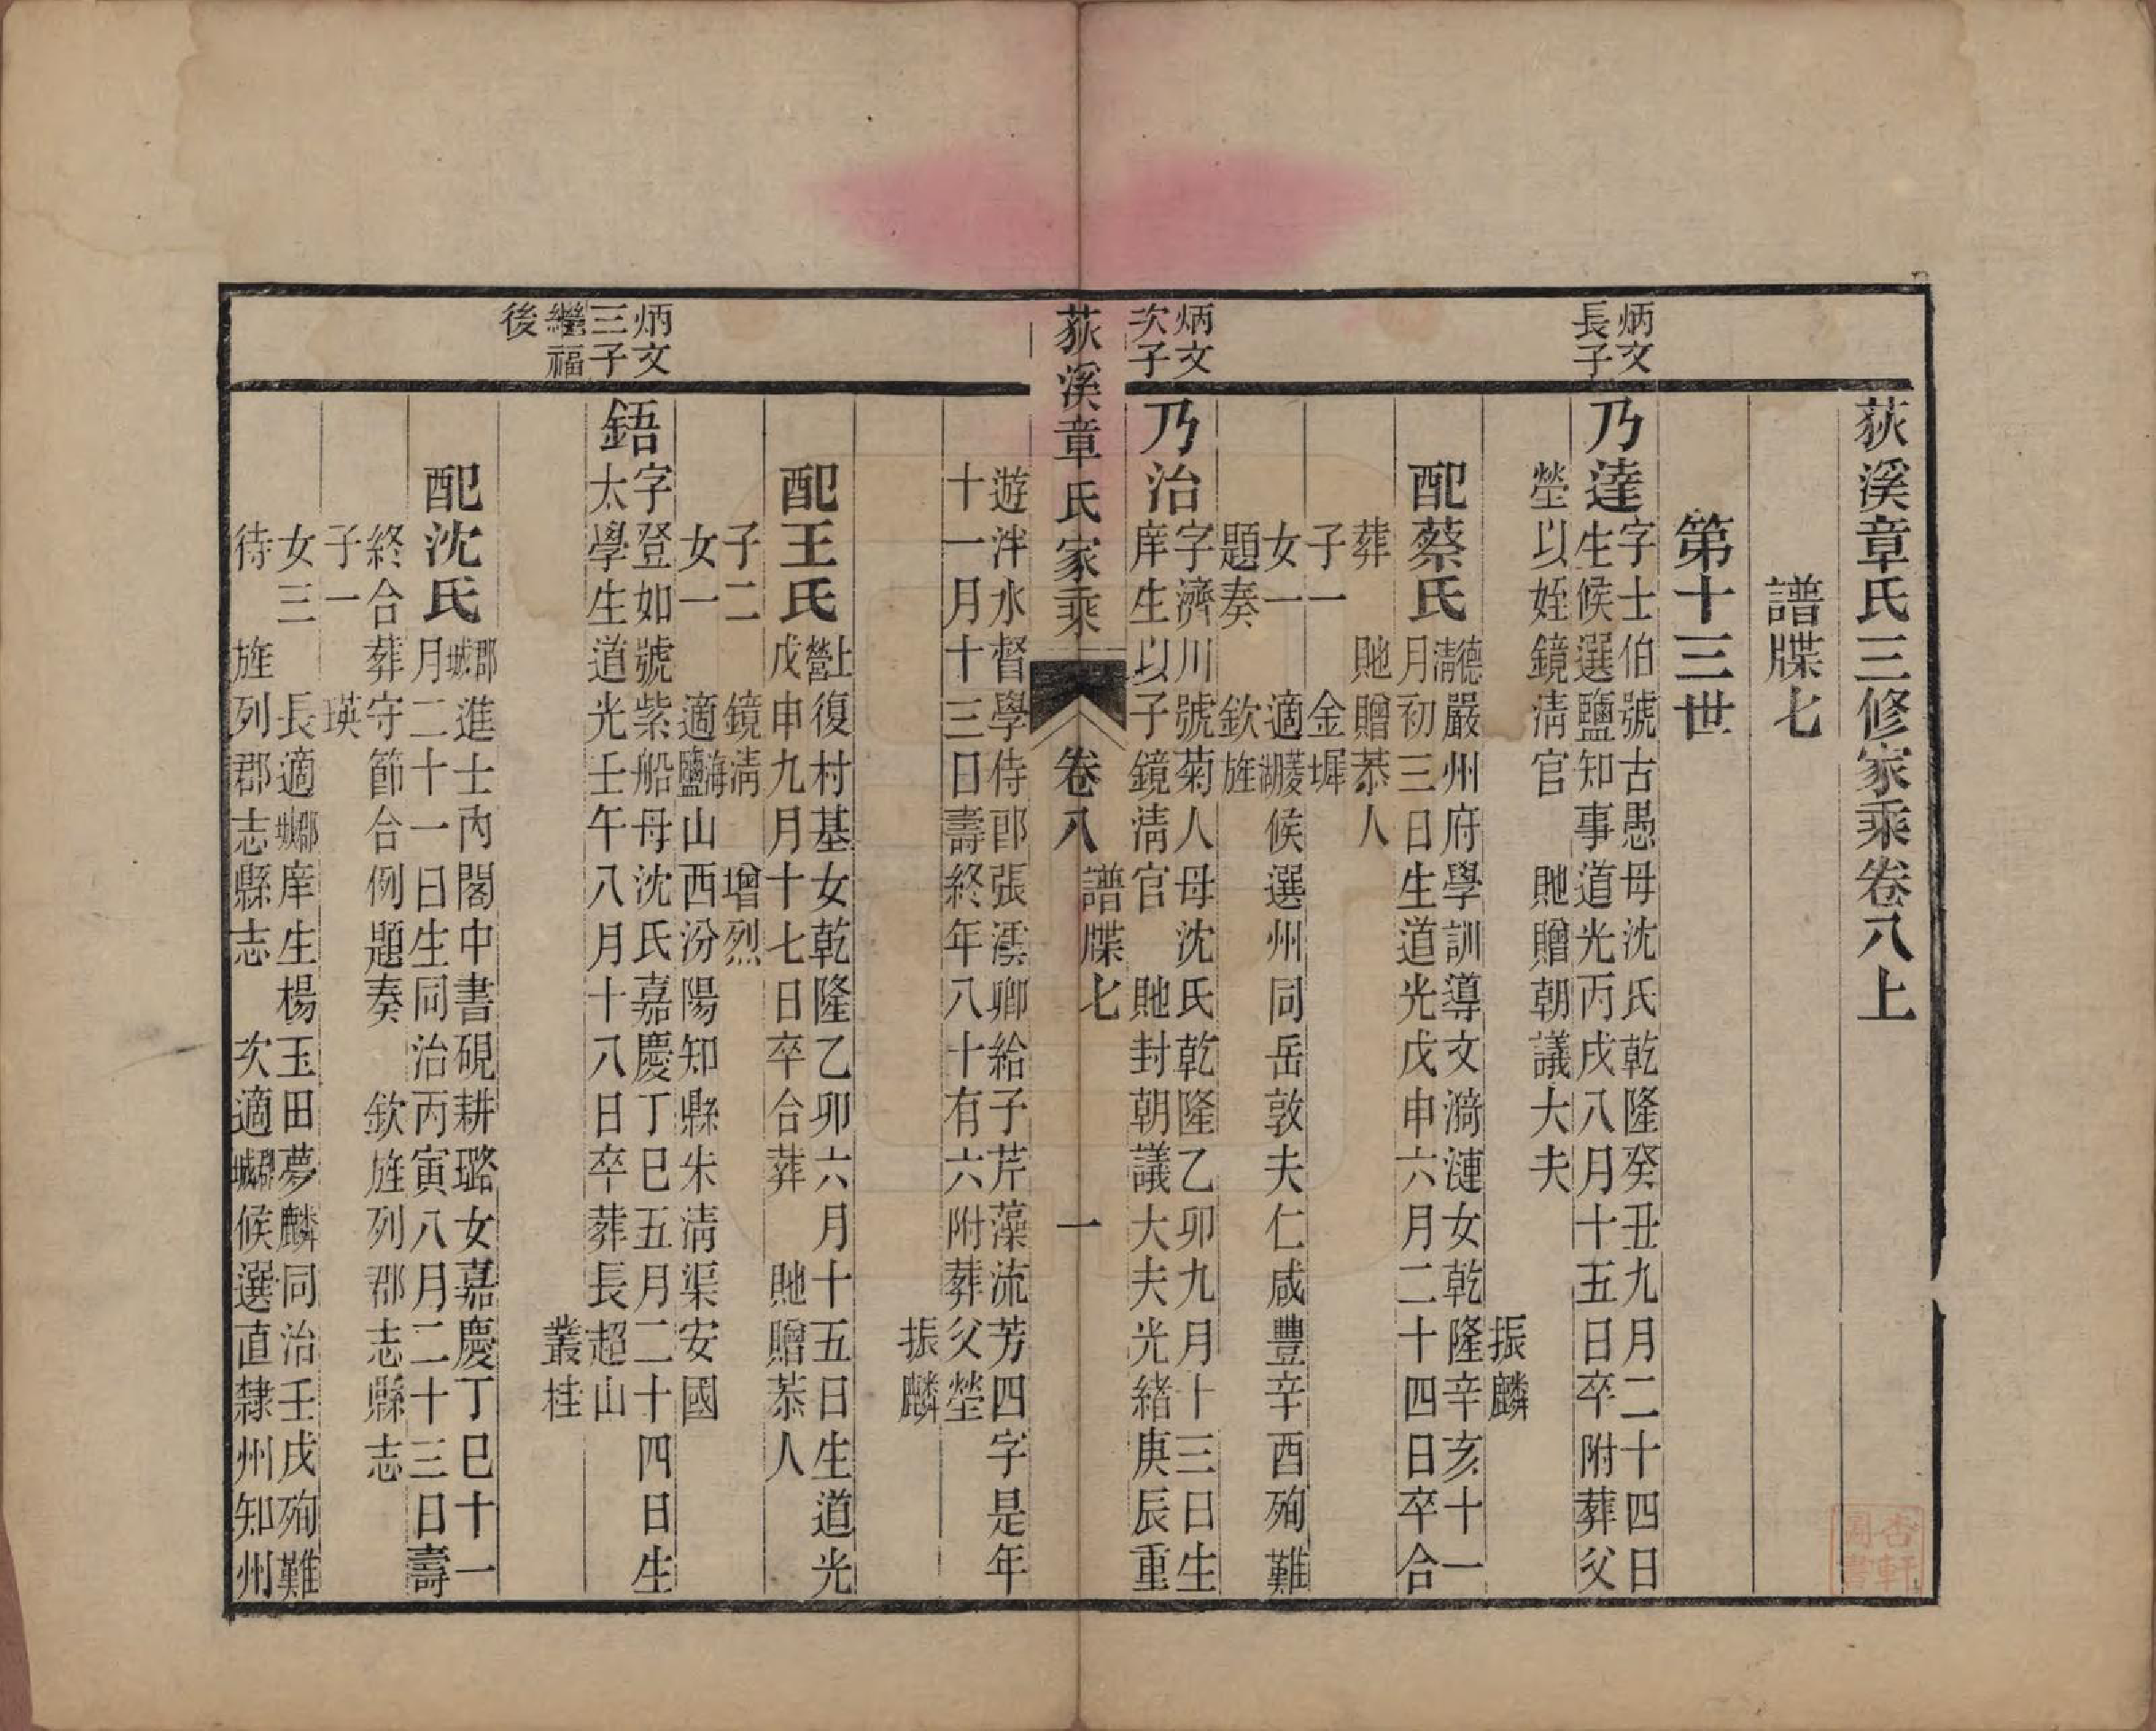 荻溪章氏三修家乘卷八上
譜牒七
第十三世
炳文
長子
乃逹
字士伯號古愚母沈氏乾隆癸丑九月二十四日
生候選鹽知事道光丙戌八月十五日卒附葬父
塋以姪鏡淸官　貤贈朝議大夫
振麟
配蔡氏
德淸嚴州府學訓導文漪漣女乾隆辛亥十一
月初三日生道光戊申六月二十四日卒合
葬　貤贈恭人
子一　金墀
女一　適菱湖候選州同岳敦夫仁咸豐辛酉殉難
題奏　欽旌
炳文
次子
乃治
字濟川號菊人母沈氏乾隆乙卯九月十三日生
庠生以子鏡淸官　貤封朝議大夫光緒庚辰重
荻溪章氏家乘
卷八
譜牒七
一
遊泮水督學侍郎張澐卿給予芹藻流芳四字是年
十一月十三日壽終年八十有六附葬父塋
振麟
配王氏
上營復村基女乾隆乙卯六月十五日生道光
戊申九月十七日卒合葬　貤贈恭人
子二　鏡淸　增烈
女一　適海鹽山西汾陽知縣朱淸渠安國
炳文
三子
繼福
後
鋙
字登如號紫船母沈氏嘉慶丁巳五月二十四日生
太學生道光壬午八月十八日卒葬長超山
叢桂
配沈氏
郡城進士內閣中書硯耕璐女嘉慶丁巳十一
月二十一日生同治丙寅八月二十三日壽
終合葬守節合例題奏　欽旌列郡志縣志
子一　瑛
女三　長適郡城庠生楊玉田夢麟同治壬戌殉難
待旌列郡志縣志　次適郡城候選直隸州知州
杏軒
圖書